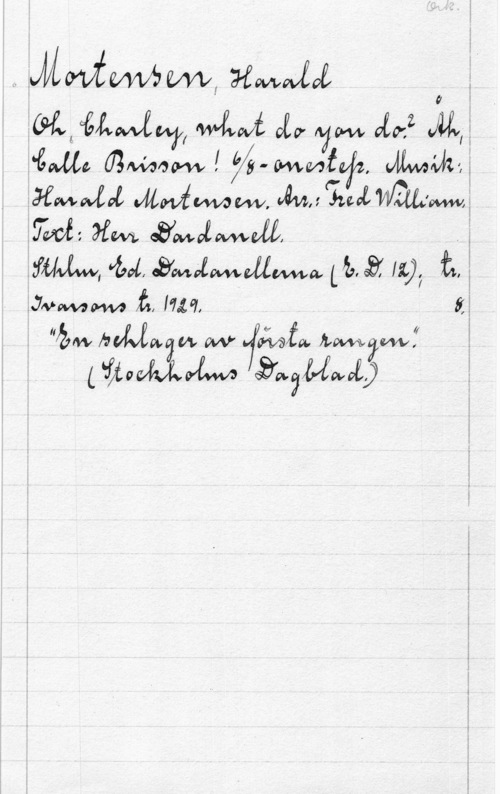 Ork.
Mortensen, Harald
Oh, Charley, what do you do? Åh,
Calle Brisson! 6/8-onestep. Musik:
Harald Mortensen. Arr.: Fred William.
Text: Herr Dardanell.
Sthlm, Ed. Dardanellerna (E. D. 12), tr.
Ivarsons tr. 1929. 8.
"En schlager av första rangen."
(Stockholms Dagblad.)